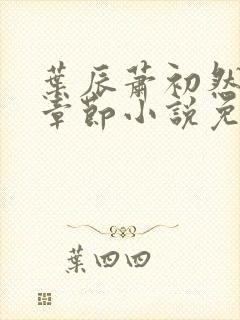 葉辰蕭初然
章節小說免
葉四四